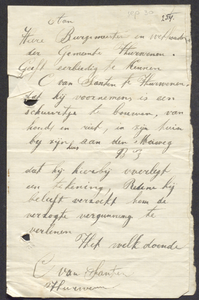 Aan
Heere Burgemeester en wethouders
der Gemeente Heerewen.
Geeft eerbiedig te kennen
C van Santen te
dat hij voornemens is een
schuurtje te bouwen, van
hout en riet, in zijn
bij zijn, aan den
dat hij hierbij overlegt
een tekening, Redene hij
beleeft verzoekt hem de
verlogte vergunning te
verlenen
Het welk doende
C van Santen